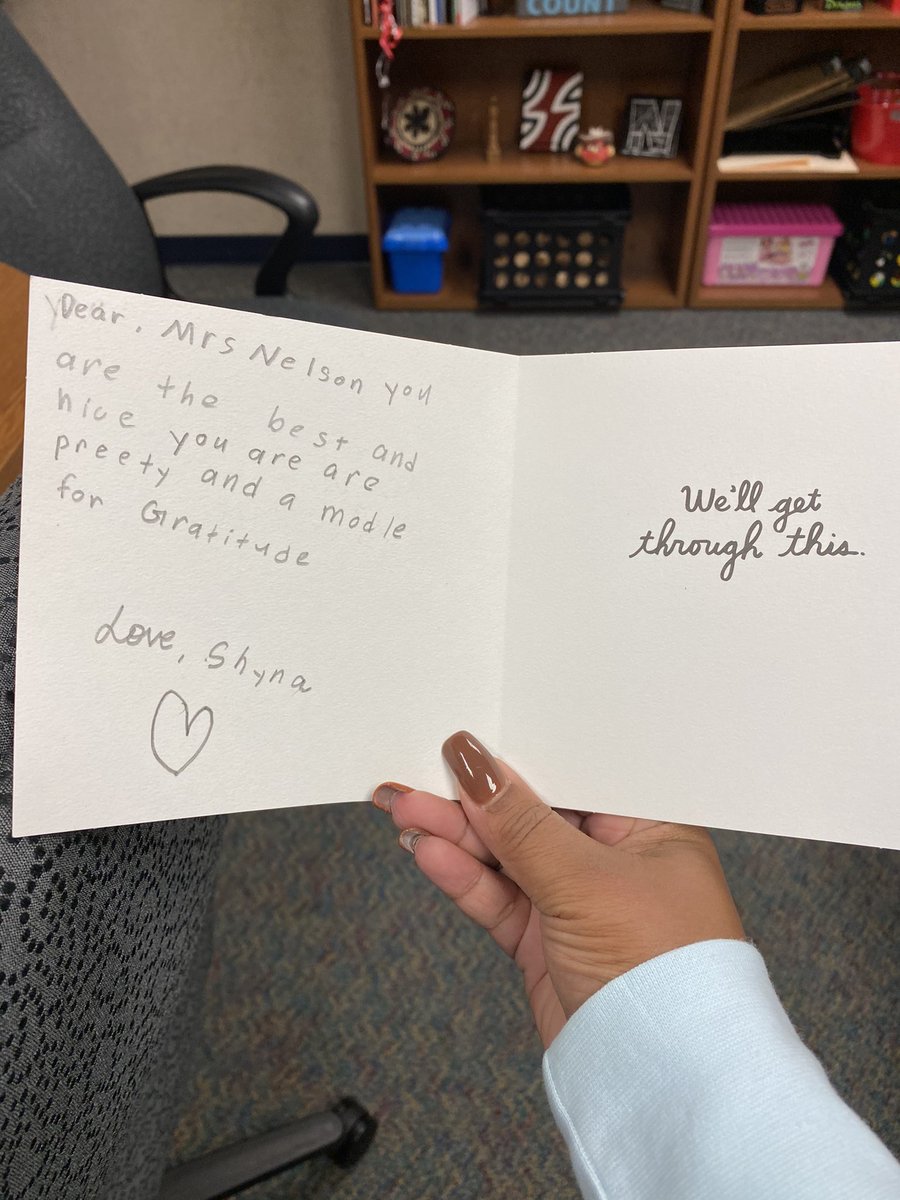 COUNT
N
Dear. Mrs Nelson you
are the best and
nice you are are
preety and a modle
for Gratitude
Love, Shyna
We'll get
through this.